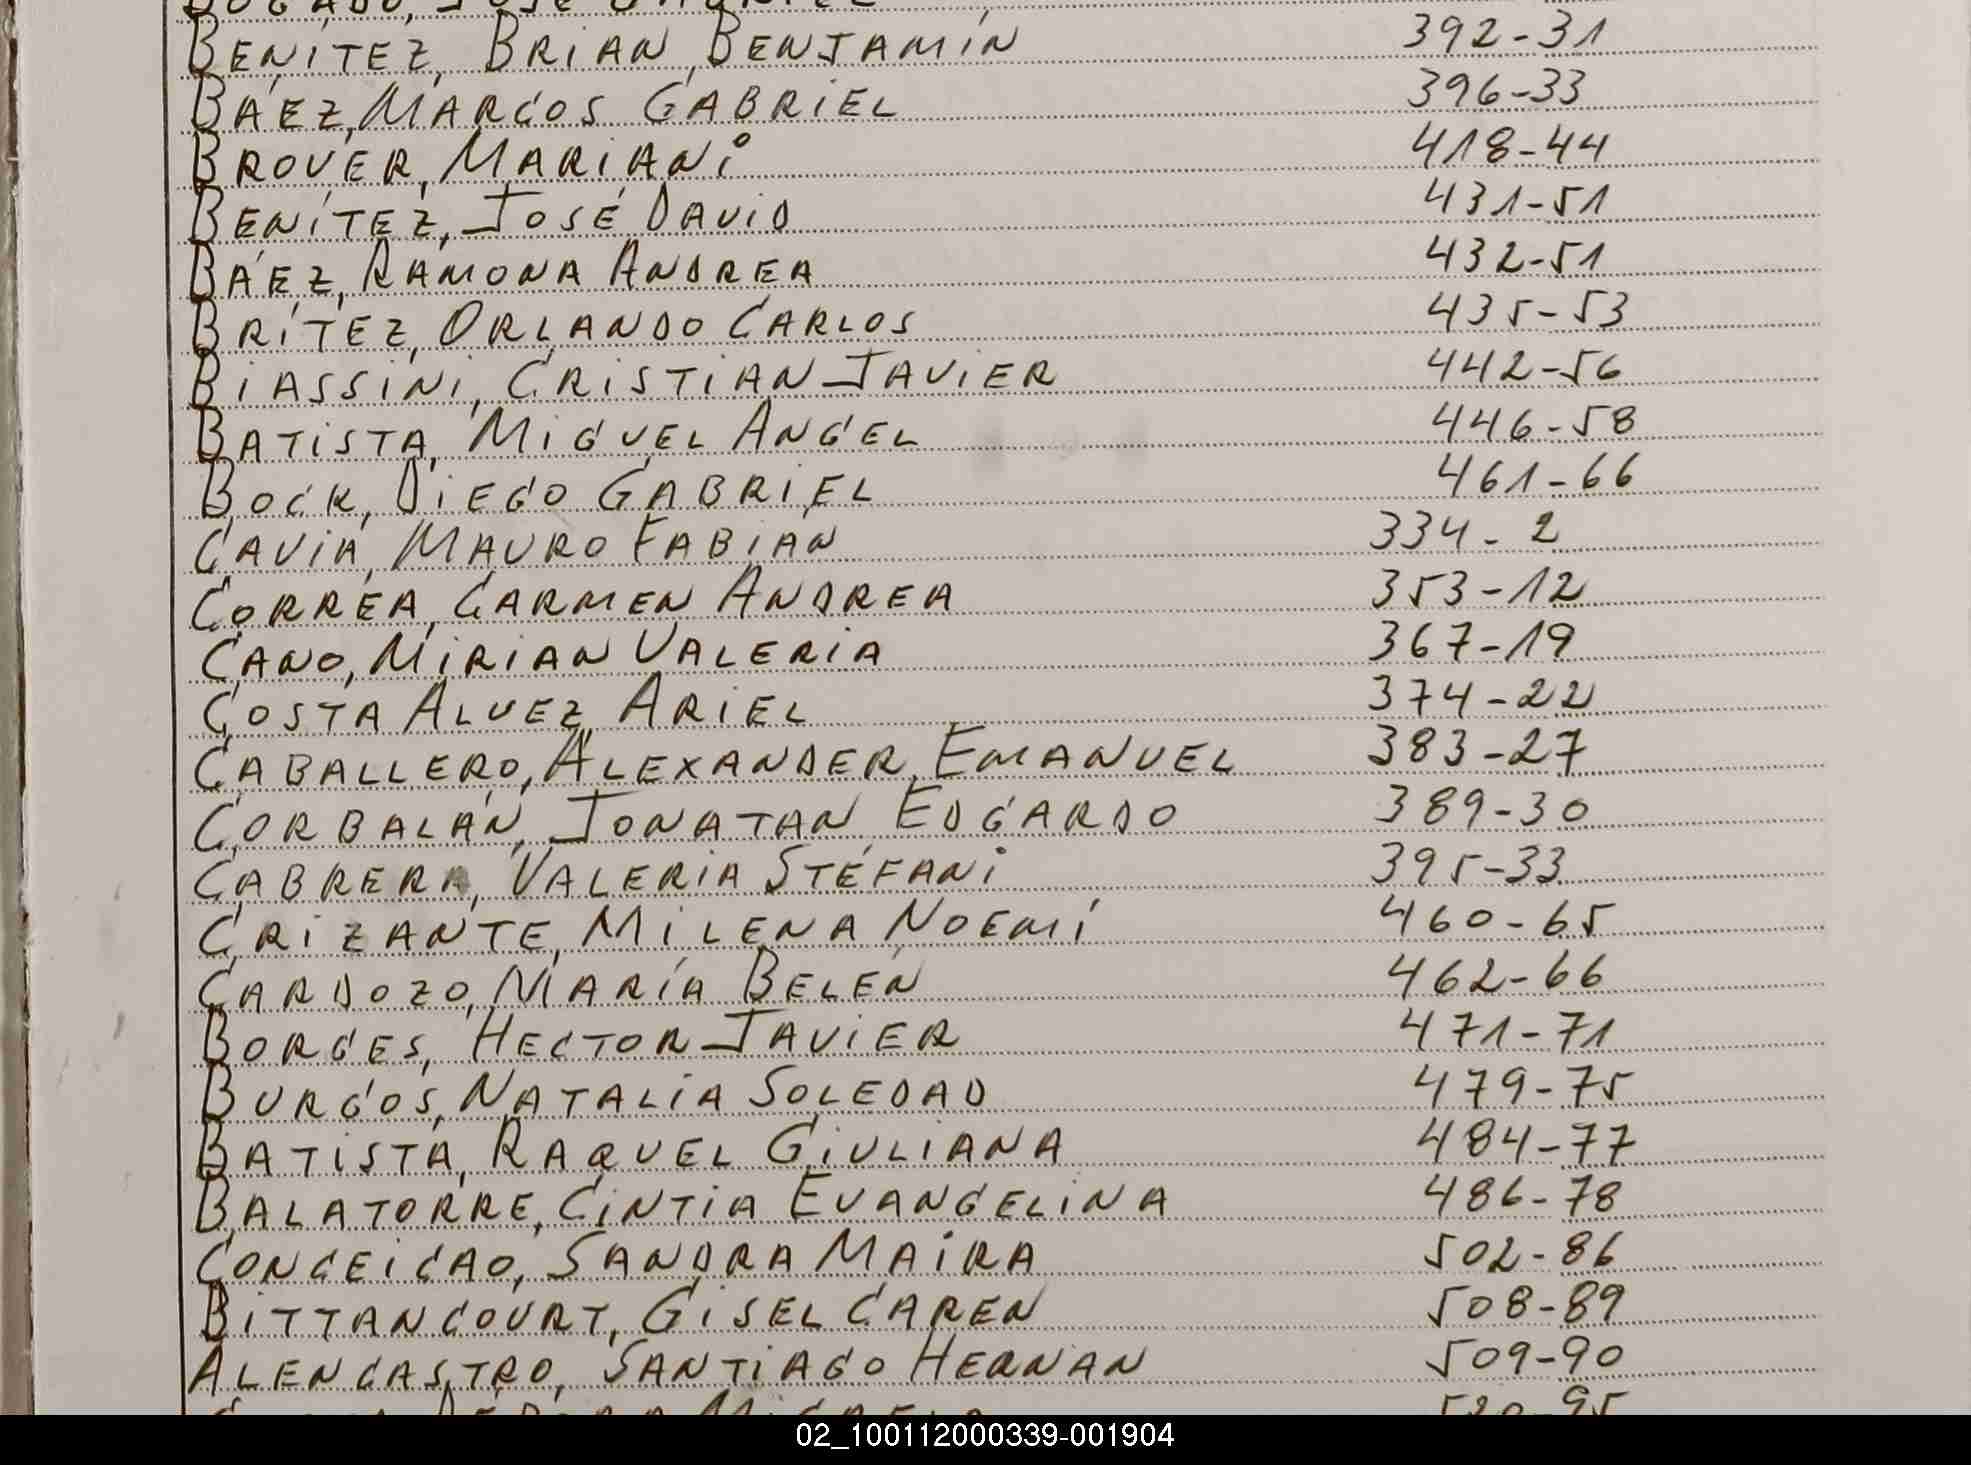 BENÍTEZ, BRIAN BENJAMÍN 392-31
BÁEZ, MARCOS GABRIEL 396-33
BROVER, MARIANI 418-44
BENÍTEZ, JOSÉ DAVID 431-51
BÁEZ, RAMONA ANDREA 432-51
BRÍTEZ, ORLANDO CARLOS 435-53
BIASSINI, CRISTIAN JAVIER 442-56
BATISTA, MIGUEL ANGEL 446-58
BOCK, DIEGO GABRIEL 461-66
CAVIA, MAURO FABIAN 334-2
CORREA, CARMEN ANDREA 353-12
CANO, MIRIAN VALERIA 367-19
COSTA ALVEZ ARIEL 374-22
CABALLERO, ALEXANDER EMANUEL 383-27
CORBALÁN, JONATAN EDGARDO 389-30
CABRERA, VALERIA STÉFANI 395-33
CRIZANTE, MILENA NOEMÍ 460-65
CARDOZO, MARÍA BELÉN 462-66
BORGES, HECTOR JAVIER 471-71
BURGOS, NATALIA SOLEDAD 479-75
BATISTA, RAQUEL GIULIANA 484-77
BALATORRE, CINTIA EVANGELINA 486-78
CONCEICAO, SANDRA MAIRA 502-86
BITTANCOURT, GISEL CAREN 508-89
ALENCASTRO, SANTIAGO HERNAN 509-90
02_100112000339-001904